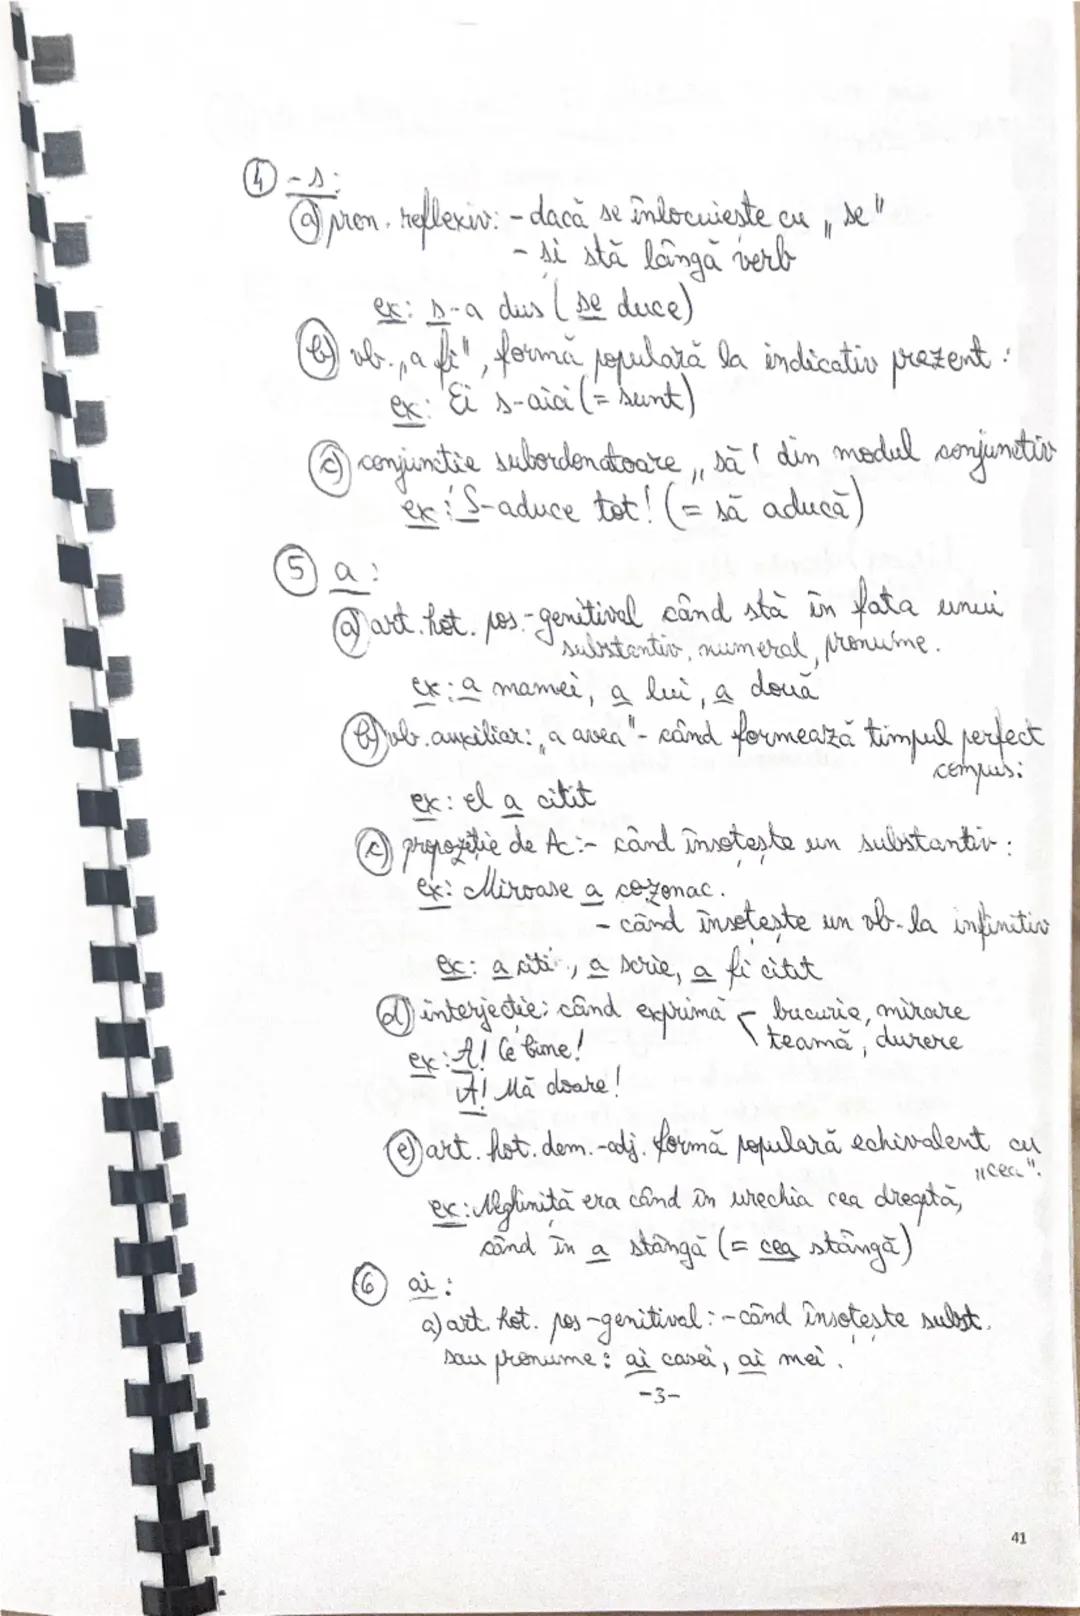 ④ -s:
ⓐ pron. reflexiv: - dacă se înlocuiește cu „se"
- și stă lângă verb
ex: s-a dus (se duce)
ⓑ vb. „a fi", formă populară la indicativ prezent:
ex: Ei s-aici (= sunt)
ⓒ conjuncție subordonatoare „să" din modul conjunctiv
ex: S-aduce tot! (= să aducă)
⑤ a:
ⓐ art. hot. pos.-genitival când stă în fața unui
substantiv, numeral, pronume.
ex: a mamei, a lui, a două
ⓑ vb. auxiliar: „a avea" - când formează timpul perfect
compus:
ex: el a citit
ⓒ prepoziție de Ac: - când însoțește un substantiv:
ex: Miroase a cozonac.
- când însoțește un vb. la infinitiv
ex: a citi, a scrie, a fi citit
ⓓ interjecție: când exprimă bucurie, mirare
teamă, durere
ex: A! Ce bine!
A! Mă doare!
ⓔ art. hot. dem.-adj. formă populară echivalent cu
„cea".
ex: Neghiniță era când în urechia cea dreaptă,
când în a stângă (= cea stângă)
⑥ ai:
a) art. hot. pos-genitival: - când însoțește subst.
sau pronume: ai casei, ai mei.
-3-
41